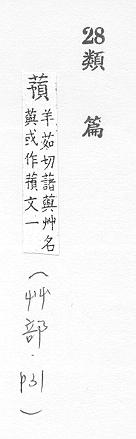 28 類篇
蕷 羊茹切藷藇艸名
藇或作蕷文一
(艸部·p31)